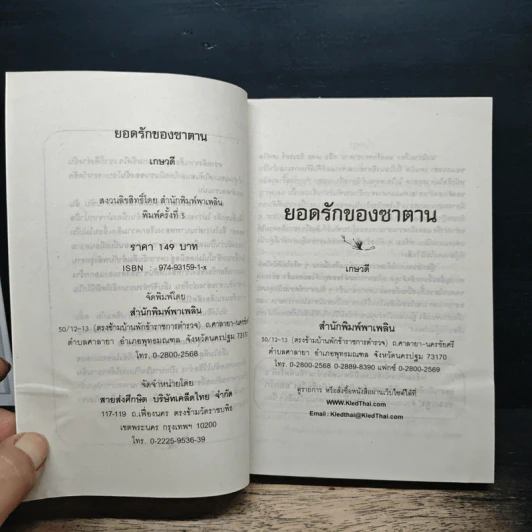 ยอดรักของซาตาน
เกษวดี
สงวนลิขสิทธิ์โดย สำนักพิมพ์พาเพลิน
พิมพ์ครั้งที่ 3
ราคา 149 บาท
ISBN : 974-93159-1-x
จัดพิมพ์โดย
สำนักพิมพ์พาเพลิน
50/12-13 (ตรงข้ามบ้านพักข้าราชการตำรวจ) ถ.ศาลายา-นครชัยศรี
ตำบลศาลายา อำเภอพุทธมณฑล จังหวัดนครปฐม 73170
โทร. 0-2800-2568
จัดจำหน่ายโดย
สายส่งศึกษิต บริษัทเคล็ดไทย จำกัด
117-119 ถ.เฟื่องนคร ตรงข้ามวัดราชบพิธ
เขตพระนคร กรุงเทพฯ 10200
โทร. 0-2225-9536-39
ยอดรักของซาตาน
เกษวดี
สำนักพิมพ์พาเพลิน
50/12-13 (ตรงข้ามบ้านพักข้าราชการตำรวจ) ถ.ศาลายา-นครชัยศรี
ตำบลศาลายา อำเภอพุทธมณฑล จังหวัดนครปฐม 73170
โทร. 0-2800-2568 0-2889-8390 แฟกซ์ 0-2800-2569
ดูรายการ หรือสั่งซื้อหนังสือผ่านเว็บไซต์ได้ที่
www.KledThai.com
Email : Kledthai@KledThai.com